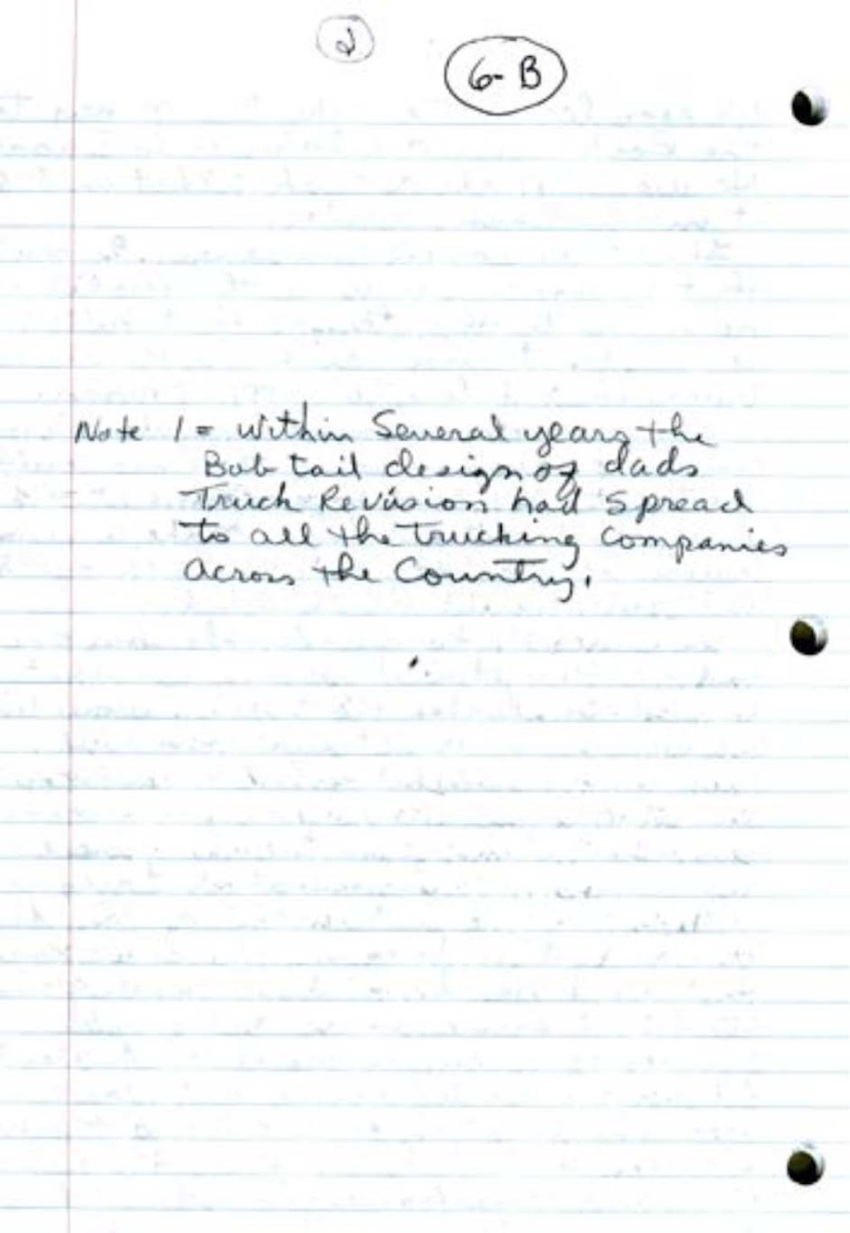 6-B
Note 1 = within Several years the
Bob tail design of dads
Truck Revision had spread
to all the trucking Companies
across the Country.